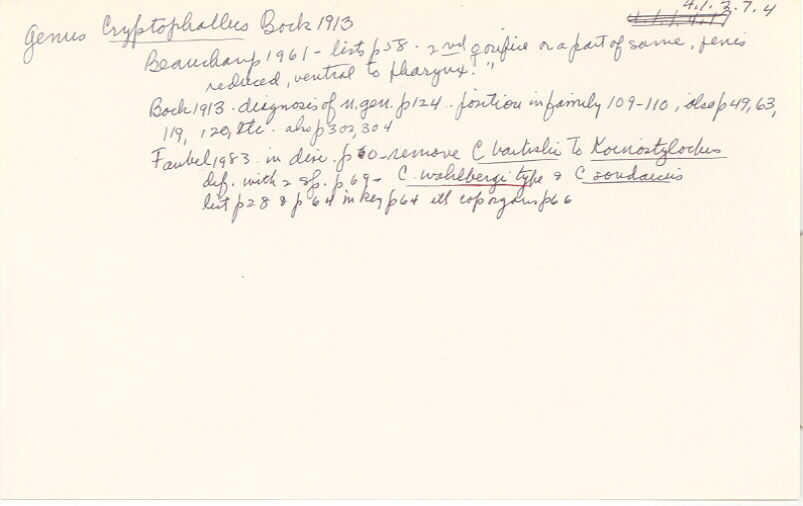 4.1.3.7.4
Genus Cryptophallus Bock 1913
Beauchamp 1961 - lists p58 - 2nd ♀ orifice on a part of same, penis
reduced, ventral to pharynx."
Bock 1913 - diagnosis of n.gen. p124 - position in family 109-110, also p49,63,
119, 120, etc. also p302, 304
Faubel 1983 in disc. p60 - remove C. to Koinostylochus
def. with 2 sp. p69 - C. wahlbergi type & C. sondaicus
list p28 & p64 in key p64 ill cop organs p66